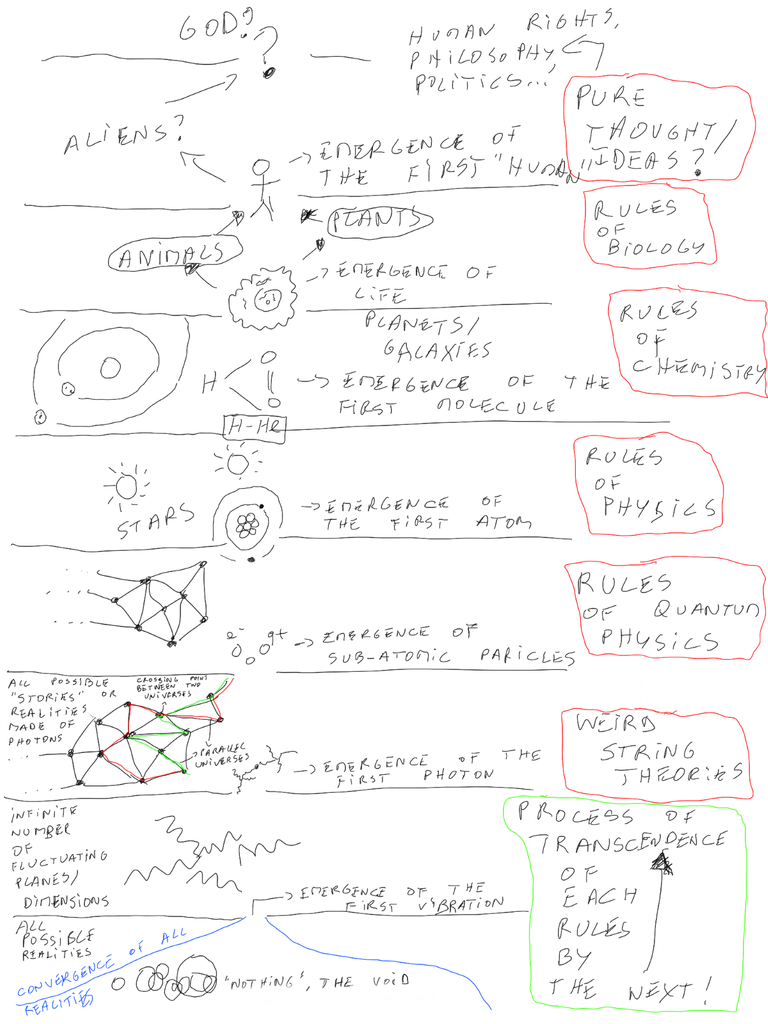 GOD?
?
HUMAN RIGHTS,
PHILOSOPHY,
POLITICS...
ALIENS?
EMERGENCE OF
THE FIRST "HUMAN"
PURE
THOUGHT/
IDEAS?
ANIMALS
PLANTS
RULES
OF
BIOLOGY
EMERGENCE OF
LIFE
PLANETS/
GALAXIES
H
O
O
EMERGENCE OF THE
FIRST MOLECULE
H-HE
RULES
OF
CHEMISTRY
STARS
EMERGENCE OF
THE FIRST ATOM
RULES
OF
PHYSICS
e-
q+
EMERGENCE OF
SUB-ATOMIC PARICLES
RULES
OF QUANTUM
PHYSICS
ALL POSSIBLE
"STORIES" OR
REALITIES
MADE OF
PHOTONS
CROSSING POINT
BETWEEN TWO
UNIVERSES
PARALLEL
UNIVERSES
EMERGENCE OF THE
FIRST PHOTON
WEIRD
STRING
THEORIES
INFINITE
NUMBER
OF
FLUCTUATING
PLANES/
DIMENSIONS
EMERGENCE OF THE
FIRST VIBRATION
PROCESS OF
TRANSCENDENCE
OF
EACH
RULES
BY
THE NEXT!
ALL
POSSIBLE
REALITIES
CONVERGENCE OF ALL
REALITIES
"NOTHING", THE VOID